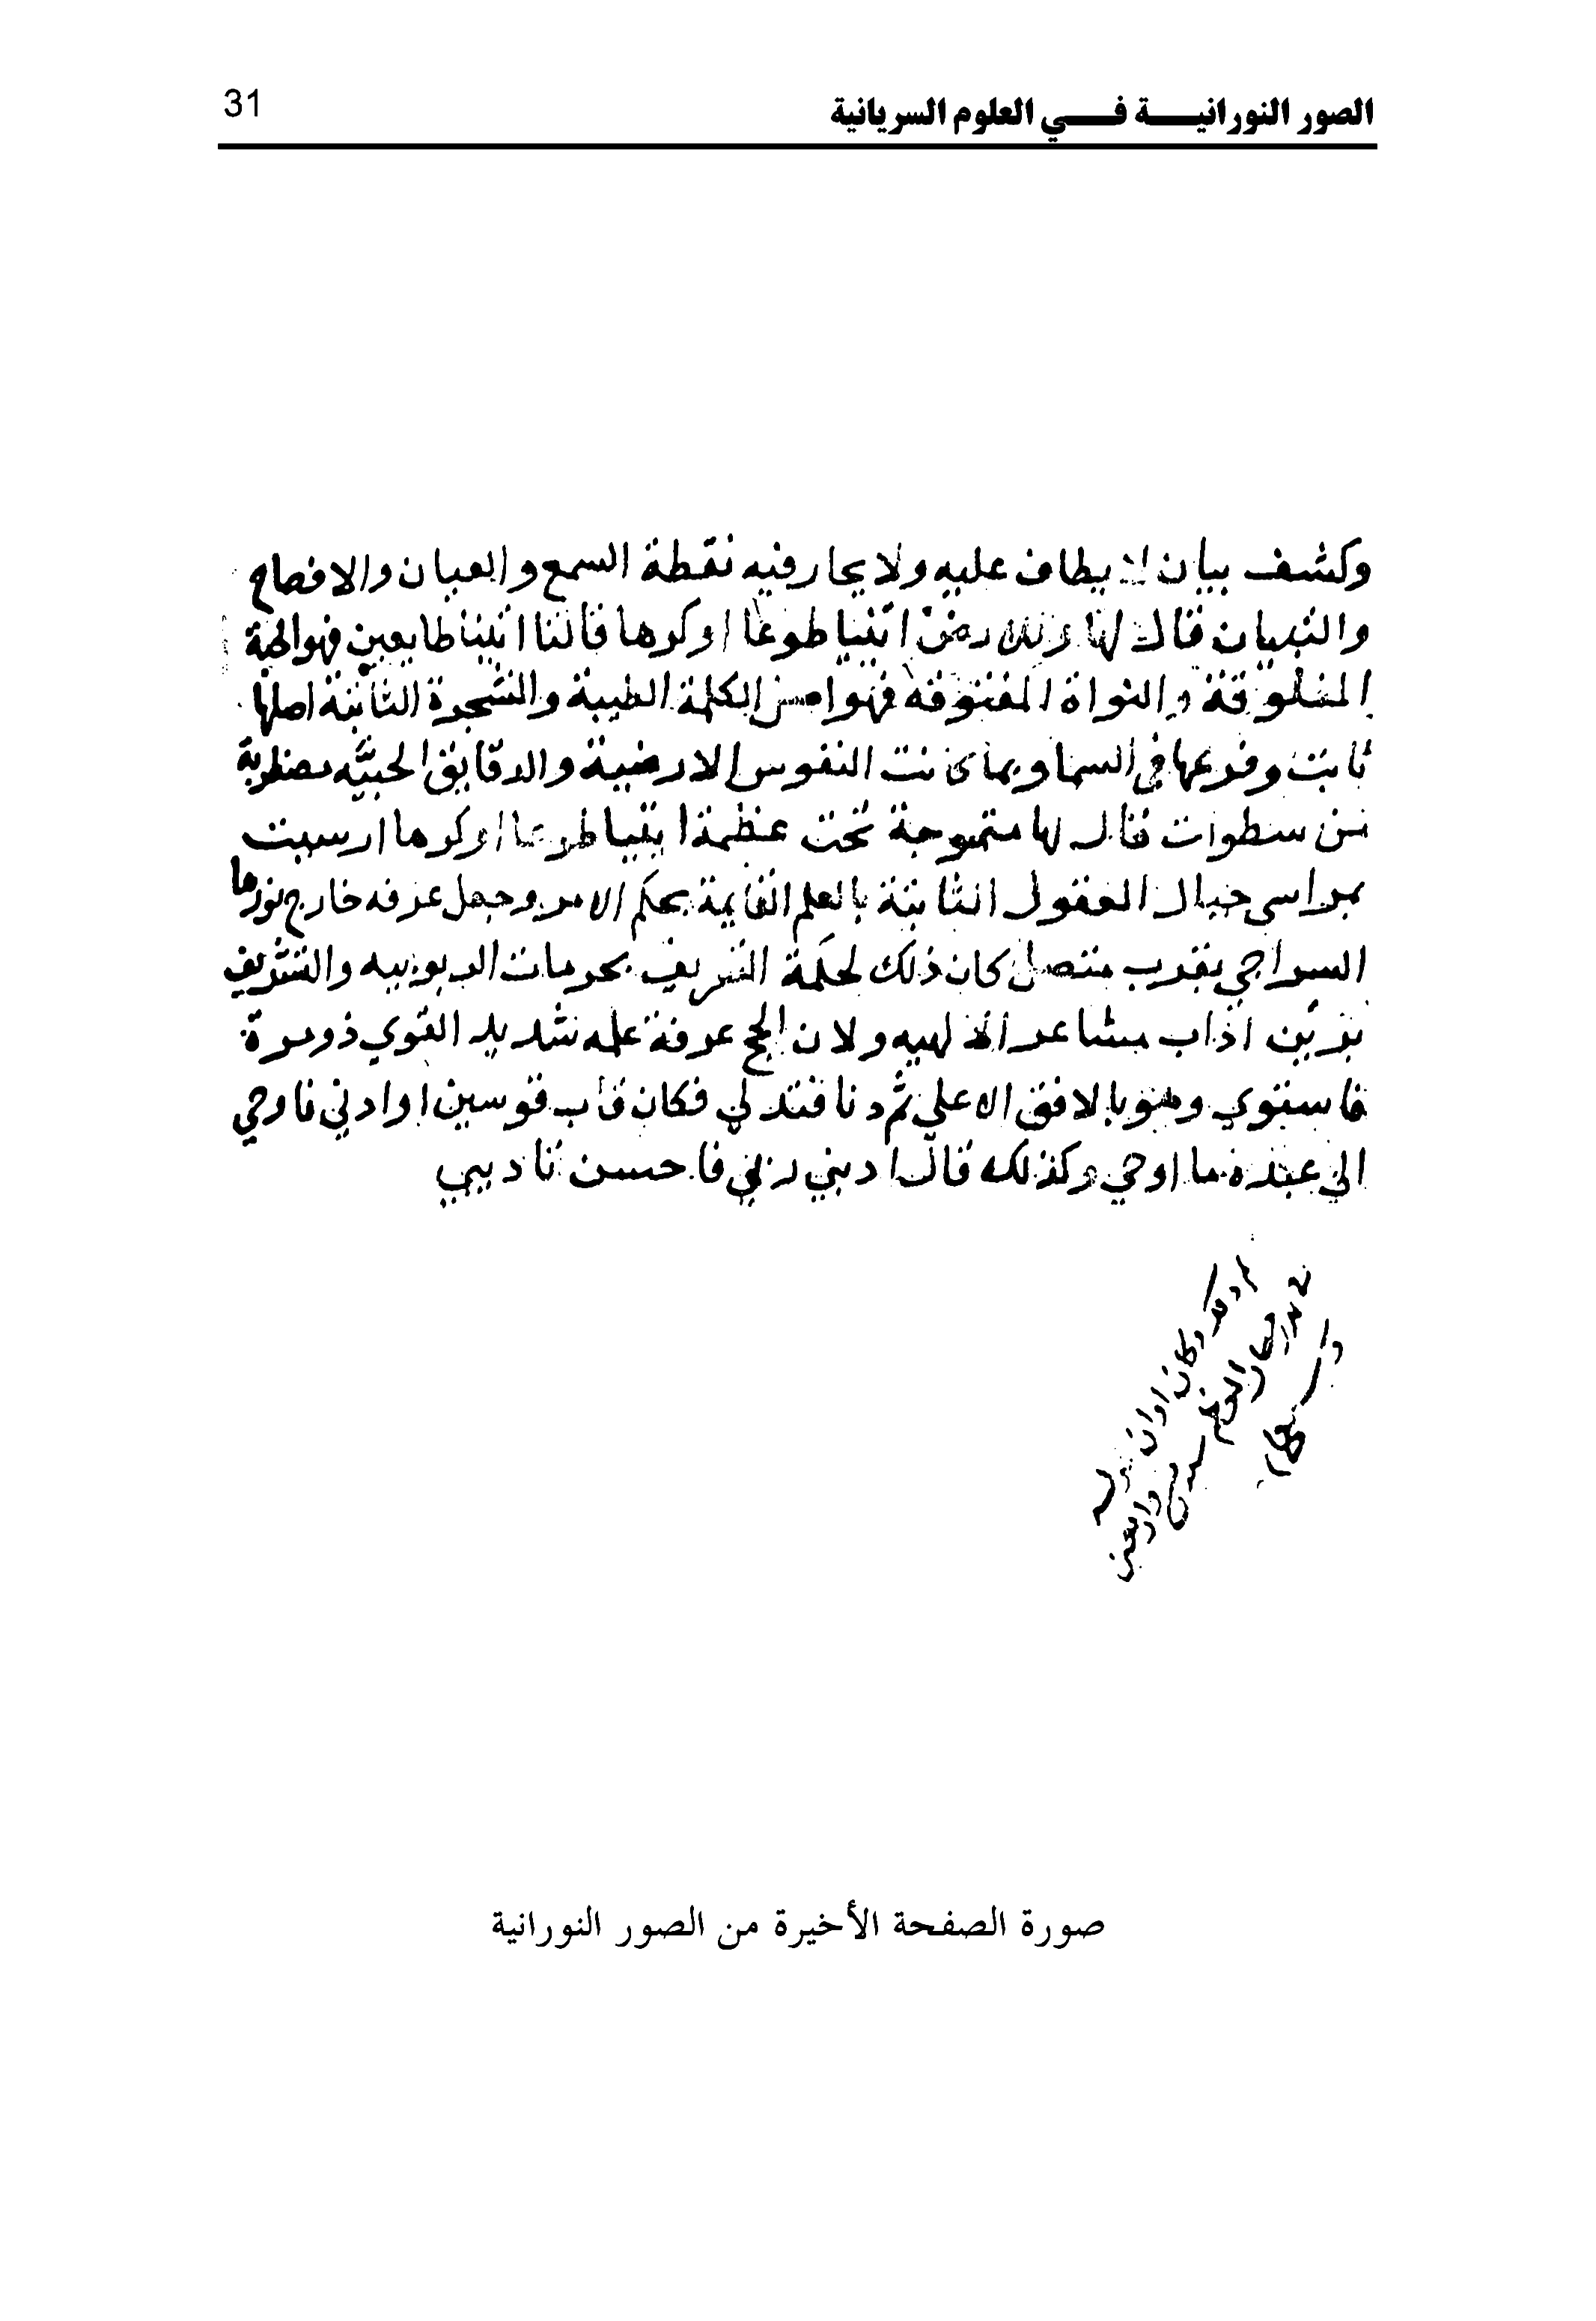 الصور النورانيـــة فـــي العلوم السريانية
31
وكشف بيان لا يطاف عليه ولا يحار فيه نقطة السمع والعيان والافصاح
والتبيان فقال لها وللارض اتيا طوعا او كرها قالتا اتينا طايعين فهو الحبة
المفلوقة والنواة المفتوقة فهو الكلمة الطيبة والشجرة الثابتة اصلها
ثابت وفرعها في السما وبما كانت النفوس الارضية والدقايق الحبيه مضطربة
من سطوات فقال لها متموجة تحت عظمة ايتيا طوعا او كرها ارسيت
براسي جبال العقول الثابتة بالعلم القايمة بحكم الامر وجعل عرفه خارج نورها
السراجي بقرب متصل كان ذلك لحكمة التعريف بحرمات الربوبيه والتشريف
اداب مشاعر الالهيه ولان الحج عرفة علمه شديد القوي ذو مرة
فاستوي وهو بالافق الاعلي ثم دنا فتدلي فكان قاب قوسين او ادني فاوحي
الي عبده ما اوحي وكذلك قال ادبني ربي فاحسن تاديبي
وكان اوان
صورة الصفحة الأخيرة من الصور النورانية